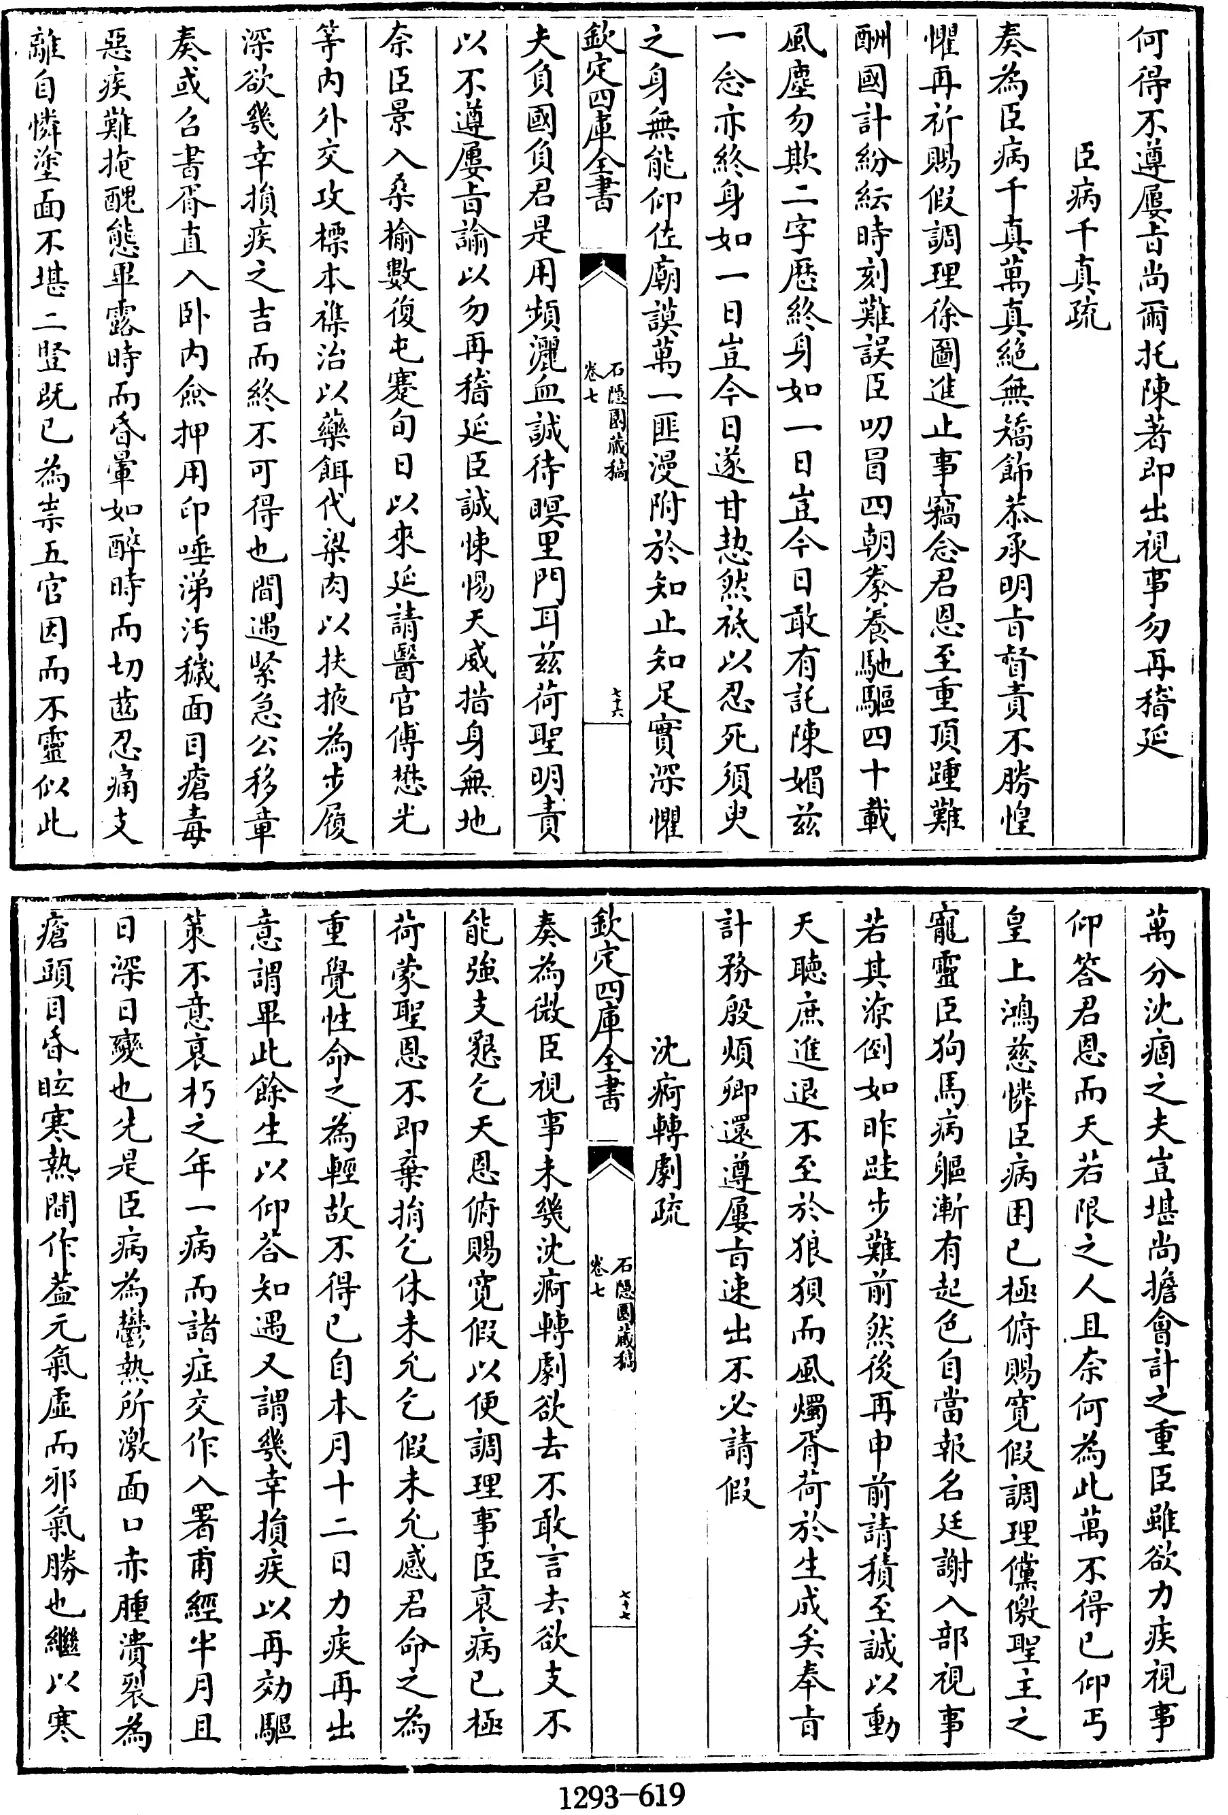 何得不遵屢旨尚爾托陳著即出視事勿再稽延
臣病千真疏
奏為臣病千真萬真絕無矯飾恭承明旨督責不勝惶
懼再祈賜假調理徐圖進止事竊念君恩至重頂踵難
酬國計紛紜時刻難誤臣叨冒四朝豢養馳驅四十載
風塵勿欺二字歷終身如一日豈今日敢有託陳媚茲
一念亦終身如一日豈今日遂甘愸然祗以忍死須臾
之身無能仰佐廟謨萬一匪漫附於知止知足實深懼
欽定四庫全書
石隱園藏稿
卷七
七十六
夫負國負君是用頻灑血誠待瞑里門耳茲荷聖明責
以不遵屢旨諭以勿再稽延臣誠悚惕天威措身無地
奈臣景入桑榆數復屯蹇旬日以來延請醫官傅懋光
等內外交攻標本襍治以藥餌代粱肉以扶掖為步履
深欲幾幸損疾之吉而終不可得也間遇緊急公移章
奏或召書胥直入卧內僉押用印唾涕污穢面目瘡毒
惡疾難掩醜態畢露時而昏暈如醉時而切齒忍痛支
離自憐塗面不堪二豎既已為祟五官因而不靈似此
萬分沈痼之夫豈堪尚擔會計之重臣雖欲力疾視事
仰答君恩而天若限之人且奈何為此萬不得已仰丐
皇上鴻慈憐臣病困已極俯賜寬假調理儻儌聖主之
寵靈臣狗馬病軀漸有起色自當報名廷謝入部視事
若其源倒如昨跬步難前然後再申前請積至誠以動
天聽庶進退不至於狼狽而風燭胥荷於生成矣奉旨
計務殷煩卿還遵屢旨速出不必請假
沈疴轉劇疏
欽定四庫全書
石隱園藏稿
卷七
七十七
奏為微臣視事未幾沈疴轉劇欲去不敢言去欲支不
能強支懇乞天恩俯賜寬假以便調理事臣衰病已極
荷蒙聖恩不即棄捐乞休未允乞假未允感君命之為
重覺性命之為輕故不得已自本月十二日力疾再出
意謂畢此餘生以仰答知遇又謂幾幸損疾以再効驅
策不意衰朽之年一病而諸症交作入署甫經半月且
日深日變也先是臣病為鬱熱所激面口赤腫潰裂為
瘡頭目昏眩寒熱間作葢元氣虛而邪氣勝也繼以寒
1293-619